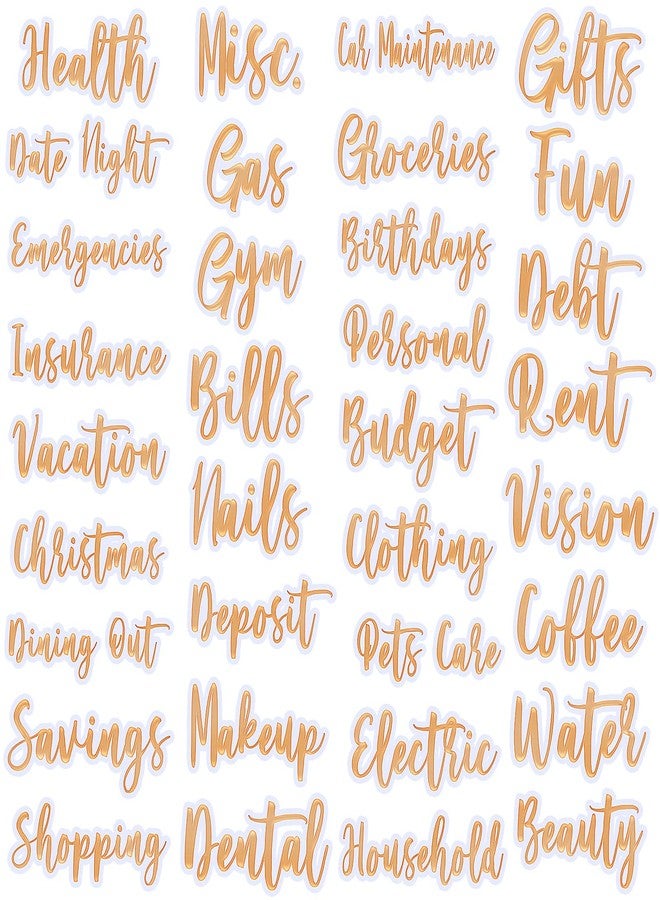 Health
Misc.
Car Maintenance
Gifts
Date Night
Gas
Groceries
Fun
Emergencies
Gym
Birthdays
Debt
Insurance
Bills
Personal
Rent
Vacation
Nails
Budget
Vision
Christmas
Deposit
Clothing
Coffee
Dining Out
Makeup
Pets Care
Water
Savings
Dental
Electric
Beauty
Shopping
Household